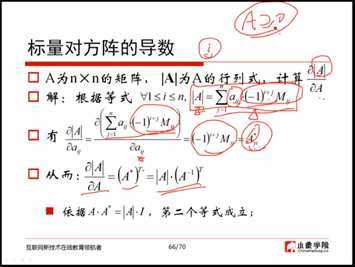 A≥0
i
标量对方阵的导数
A为n×n的矩阵，|A|为A的行列式，计算 ∂|A|/∂A
解：根据等式 ∀1≤i≤n, |A| = ∑_{j=1}^{n} a_{ij}(-1)^{i+j}M_{ij}
有 ∂|A|/∂a_{ij} = ∂(∑_{j=1}^{n} a_{ij}(-1)^{i+j}M_{ij})/∂a_{ij} = (-1)^{i+j}M_{ij} = A^*_{ji}
从而：∂|A|/∂A = (A^*)^T = |A|·(A^{-1})^T
依据A·A^* = |A|·I，第二个等式成立；
互联网新技术在线教育领航者
66/70
小象学院
ChinaHadoop.cn